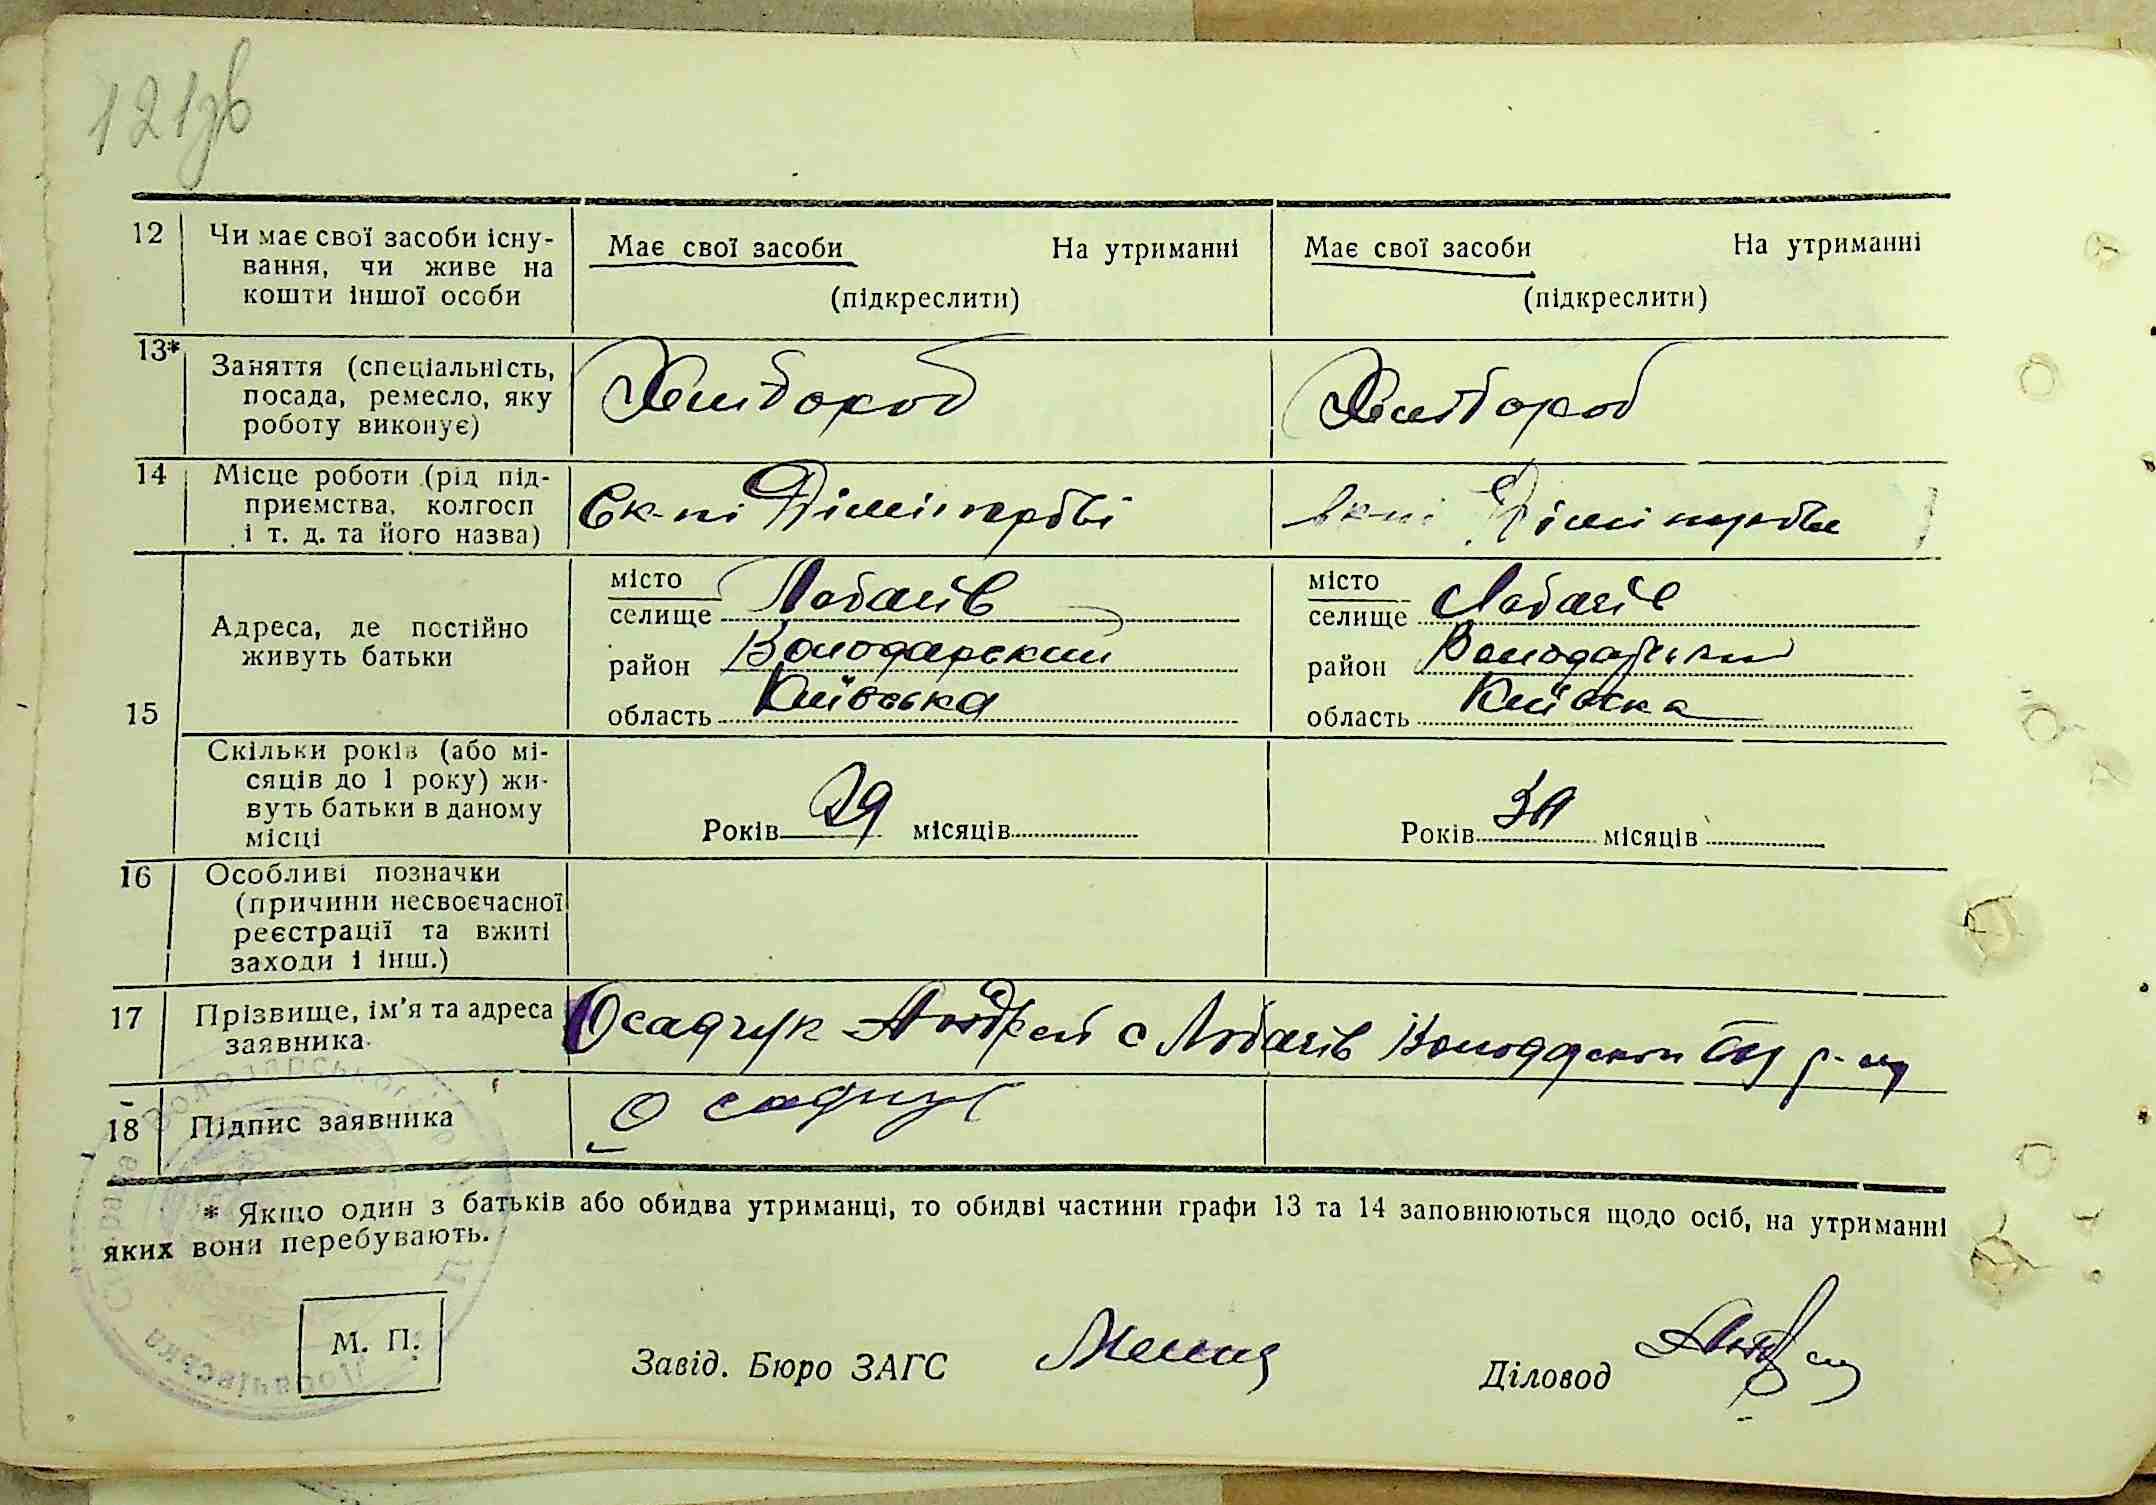 121зв
12 Чи має свої засоби існу-
вання, чи живе на
кошти іншої особи
Має свої засоби На утриманні
(підкреслити)
Має свої засоби На утриманні
(підкреслити)
13* Заняття (спеціальність,
посада, ремесло, яку
роботу виконує)
Хлибороб
Хлибороб
14 Місце роботи (рід під-
приємства, колгосп
і т. д. та його назва)
15 Адреса, де постійно
живуть батьки
місто
селище Лобачів
район Володарский
область Київська
місто
селище Лобачів
район Володарський
область Київска
Скільки років (або мі-
сяців до 1 року) жи-
вуть батьки в даному
місці
Років 29 місяців
Років місяців
16 Особливі позначки
(причини несвоєчасної
реєстрації та вжиті
заходи і інш.)
17 Прізвище, ім'я та адреса
заявника
Осадчук Андрей с Лобачів
18 Підпис заявника
Осадчук
* Якщо один з батьків або обидва утриманці, то обидві частини графи 13 та 14 заповнюються щодо осіб, на утриманні
яких вони перебувають.
М. П.
Завід. Бюро ЗАГС
Діловод